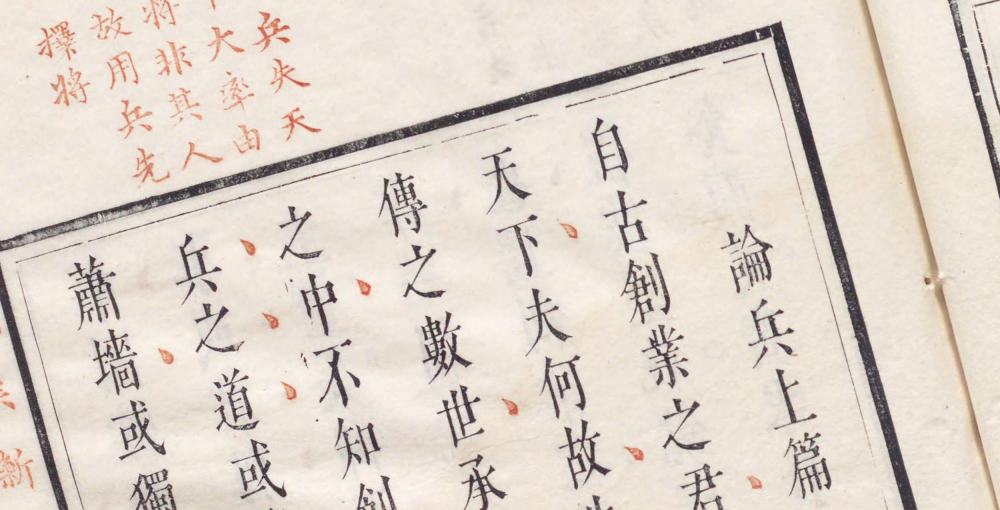 兵失天
大率由
將非其人
故用兵先
擇將
論兵上篇
自古創業之君
天下夫何故
傳之數世承
之中不知創
兵之道或
蕭墻或獨
漸